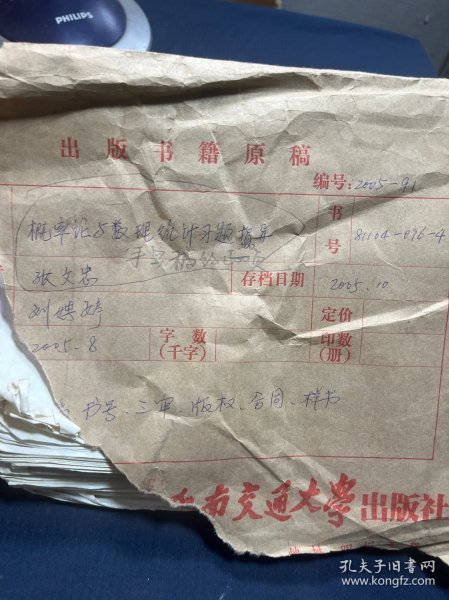 PHILIPS
出版书籍原稿
编号:2005-91
概率论与数理统计习题指导
书号
81104-096-4
手写稿
张文忠
存档日期
2005.10
刘娉婷
定价
2005.8
字数(千字)
印数(册)
书号、三审、版权、合同、样书
南交通大学出版社
孔夫子旧书网
www.kongfz.com